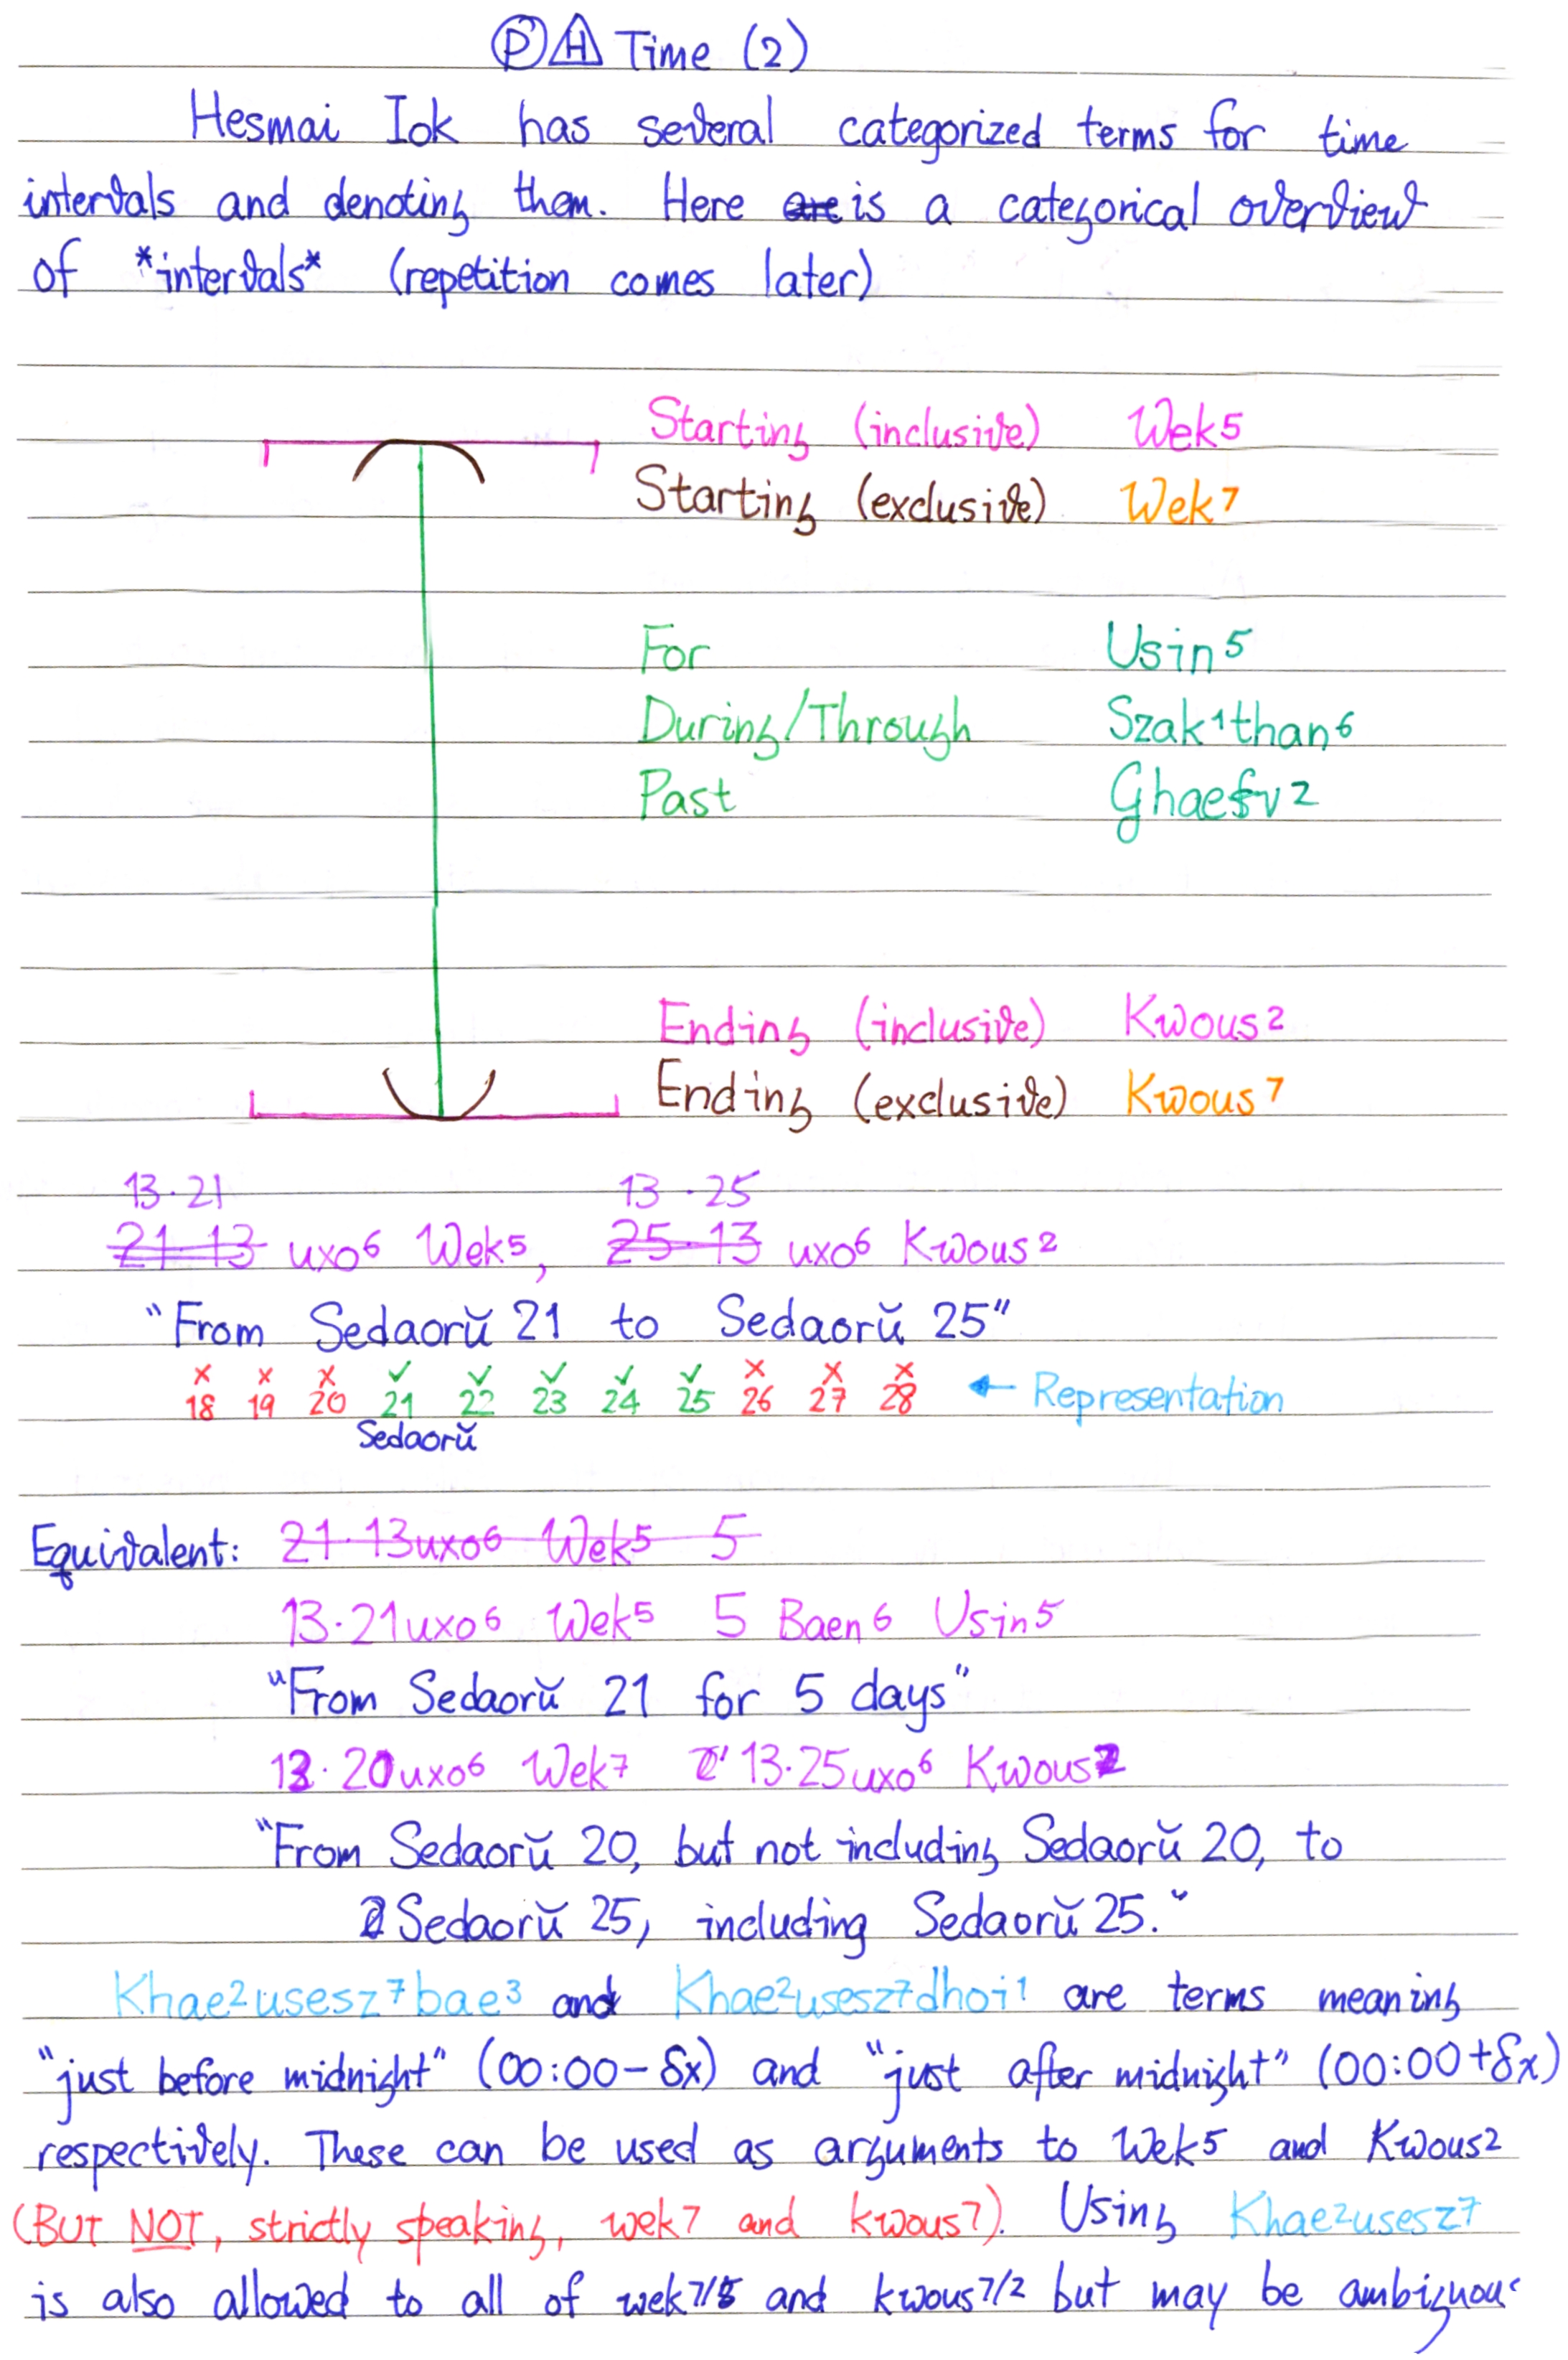 Ⓟ Ⓗ Time (2)
Hesmai Iok has several categorized terms for time
intervals and denoting them. Here are is a categorical overview
of *intervals* (repetition comes later)
Starting (inclusive) Wek5
Starting (exclusive) Wek7
For Usin5
During/Through Szak1than6
Past Ghaefv2
Ending (inclusive) Kwous2
Ending (exclusive) Kwous7
13.21 13.25
21.13 uxo6 Wek5, 25.13 uxo6 Kwous2
"From Sedaorŭ 21 to Sedaorŭ 25"
× × × ✓ ✓ ✓ ✓ ✓ × × ×
18 19 20 21 22 23 24 25 26 27 28 ← Representation
Sedaorŭ
Equivalent: 21.13uxo6 Wek5 5
13.21uxo6 Wek5 5 Baen6 Usin5
"From Sedaorŭ 21 for 5 days"
13.20uxo6 Wek7 13.25uxo6 Kwous2
"From Sedaorŭ 20, but not including Sedaorŭ 20, to
Sedaorŭ 25, including Sedaorŭ 25."
Khae2usesz7bae3 and Khae2usesz7dhoi1 are terms meaning
"just before midnight" (00:00-δx) and "just after midnight" (00:00+δx)
respectively. These can be used as arguments to Wek5 and Kwous2
(BUT NOT, strictly speaking, wek7 and kwous7). Using Khae2usesz7
is also allowed to all of wek7/5 and kwous7/2 but may be ambiguous